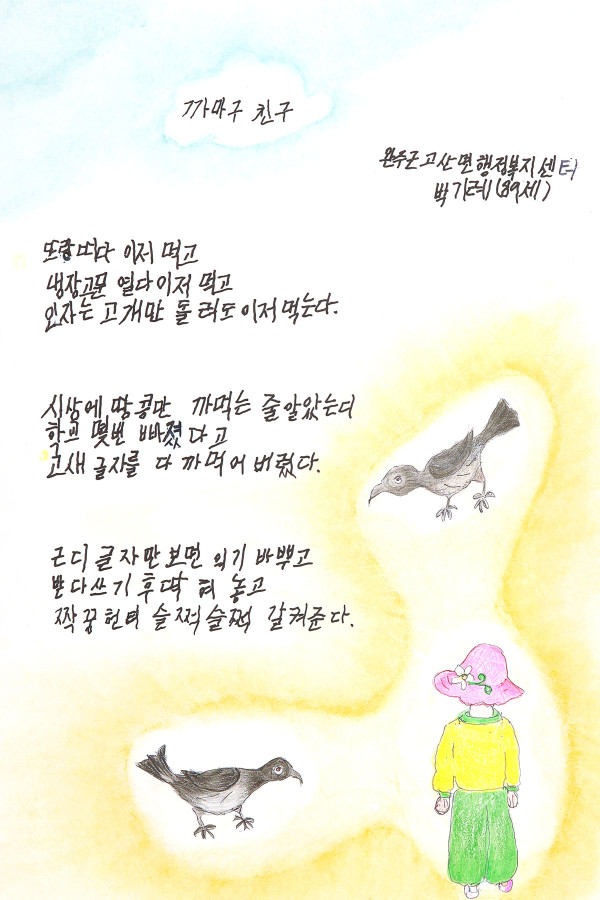 까마구 친구
완주군 고산면 행정복지센터
박기례(89세)
또랑 떠다 이저 먹고
냉장고문 열다 이저 먹고
인자는 고개만 돌려도 이저 먹는다.
시상에 땅콩만 까먹는 줄 알았는디
학교 몇번 빠졌다고
고새 글자를 다 까먹어 버렸다.
근디 글자만 보면 외기 바쁘고
받다쓰기 후딱 혀 놓고
짝꿍헌티 슬쩍슬쩍 갈켜준다.